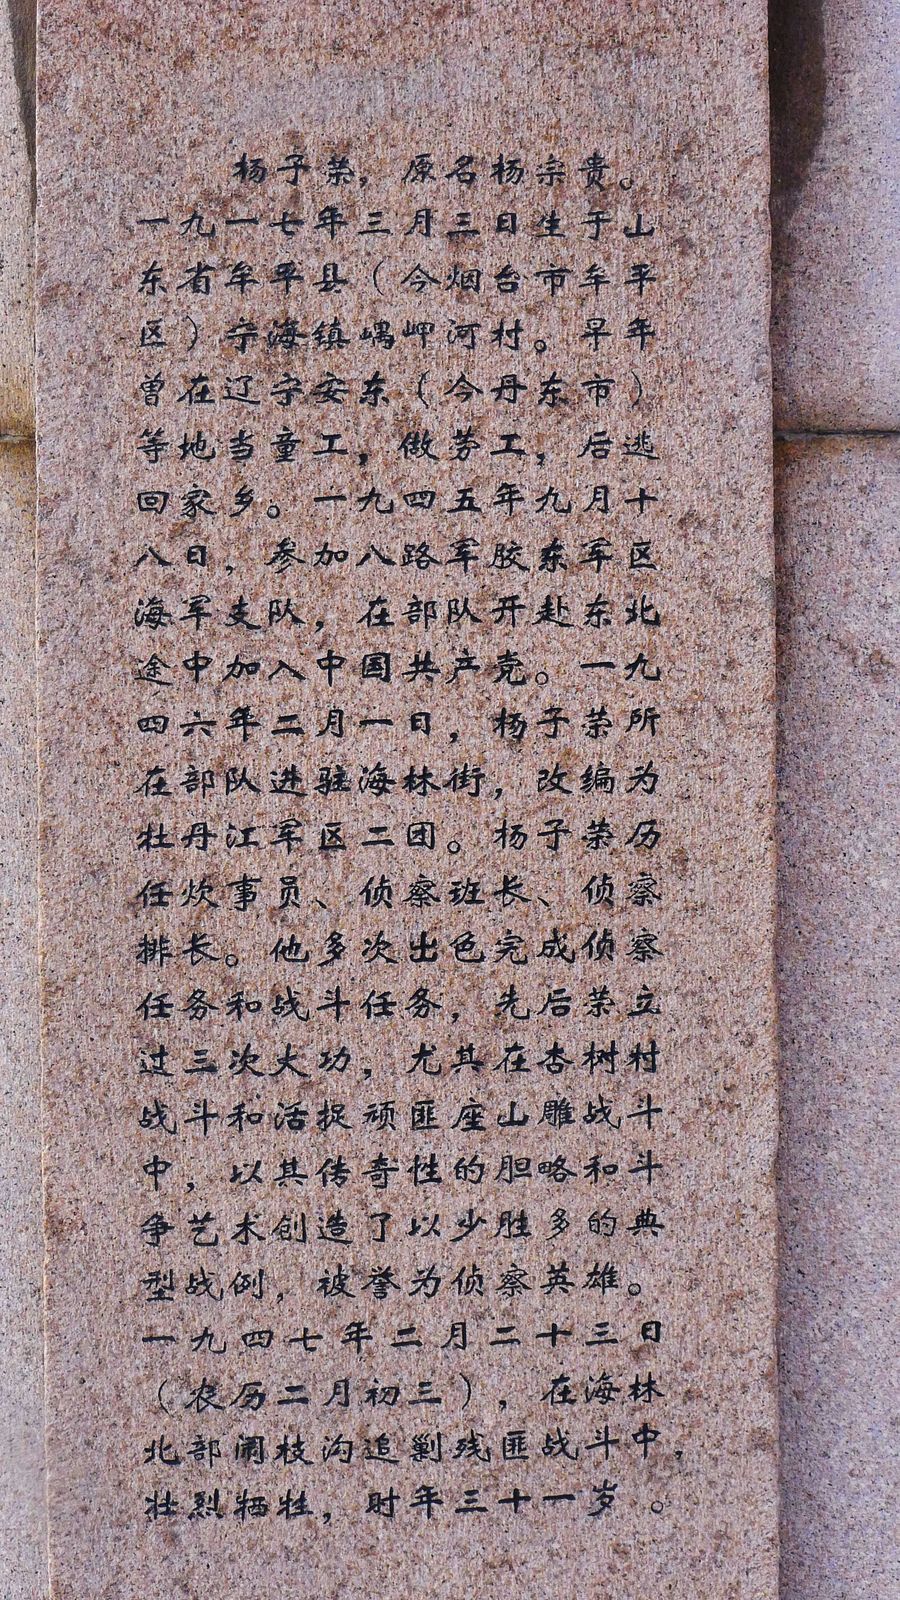 杨子荣，原名杨宗贵。
一九一七年三月三日生于山
东省牟平县（今烟台市牟平
区）宁海镇嵎岬河村。早年
曾在辽宁安东（今丹东市）
等地当童工，做劳工，后逃
回家乡。一九四五年九月十
八日，参加八路军胶东军区
海军支队，在部队开赴东北
途中加入中国共产党。一九
四六年二月一日，杨子荣所
在部队进驻海林街，改编为
牡丹江军区二团。杨子荣历
任炊事员、侦察班长、侦察
排长。他多次出色完成侦察
任务和战斗任务，先后荣立
过三次大功，尤其在杏树村
战斗和活捉顽匪座山雕战斗
中，以其传奇性的胆略和斗
争艺术创造了以少胜多的典
型战例，被誉为侦察英雄。
一九四七年二月二十三日
（农历二月初三），在海林
北部闹枝沟追剿残匪战斗中，
壮烈牺牲，时年三十一岁。